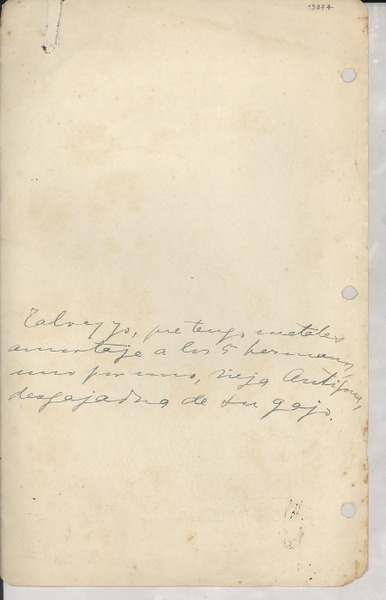 19874
Talvez yo, que tengo
amortaje a los 5 hermanos,
uno por uno, vieja Antífona,
desgajadora de su gajo.